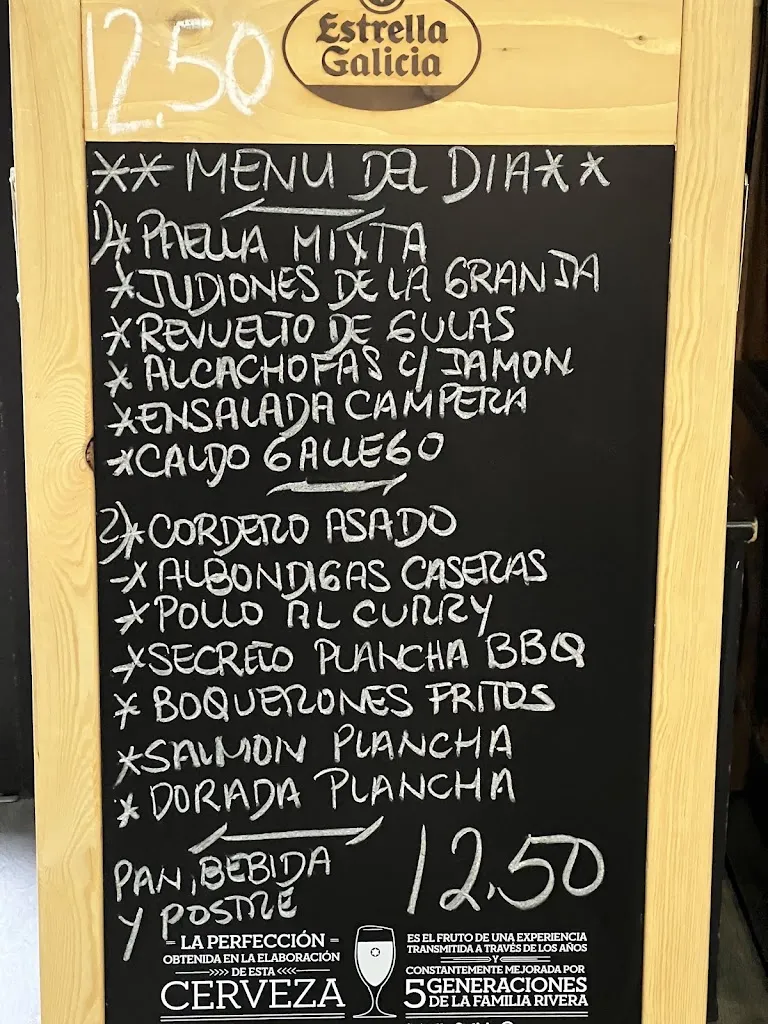 12.50
Estrella
Galicia
** MENU DEL DIA**
1)* PAELLA MIXTA
*JUDIONES DE LA GRANJA
*REVUELTO DE GULAS
* ALCACHOFAS C/ JAMON
*ENSALADA CAMPERA
*CALDO GALLEGO
2)* CORDERO ASADO
-* ALBONDIGAS CASERAS
*POLLO AL CURRY
*SECRETO PLANCHA BBQ
* BOQUERONES FRITOS
*SALMON PLANCHA
* DORADA PLANCHA
PAN, BEBIDA
Y POSTRE
12.50
LA PERFECCIÓN
OBTENIDA EN LA ELABORACIÓN
»»» DE ESTA «««
CERVEZA
ES EL FRUTO DE UNA EXPERIENCIA
TRANSMITIDA A TRAVÉS DE LOS AÑOS
Y
CONSTANTEMENTE MEJORADA POR
5 GENERACIONES
DE LA FAMILIA RIVERA